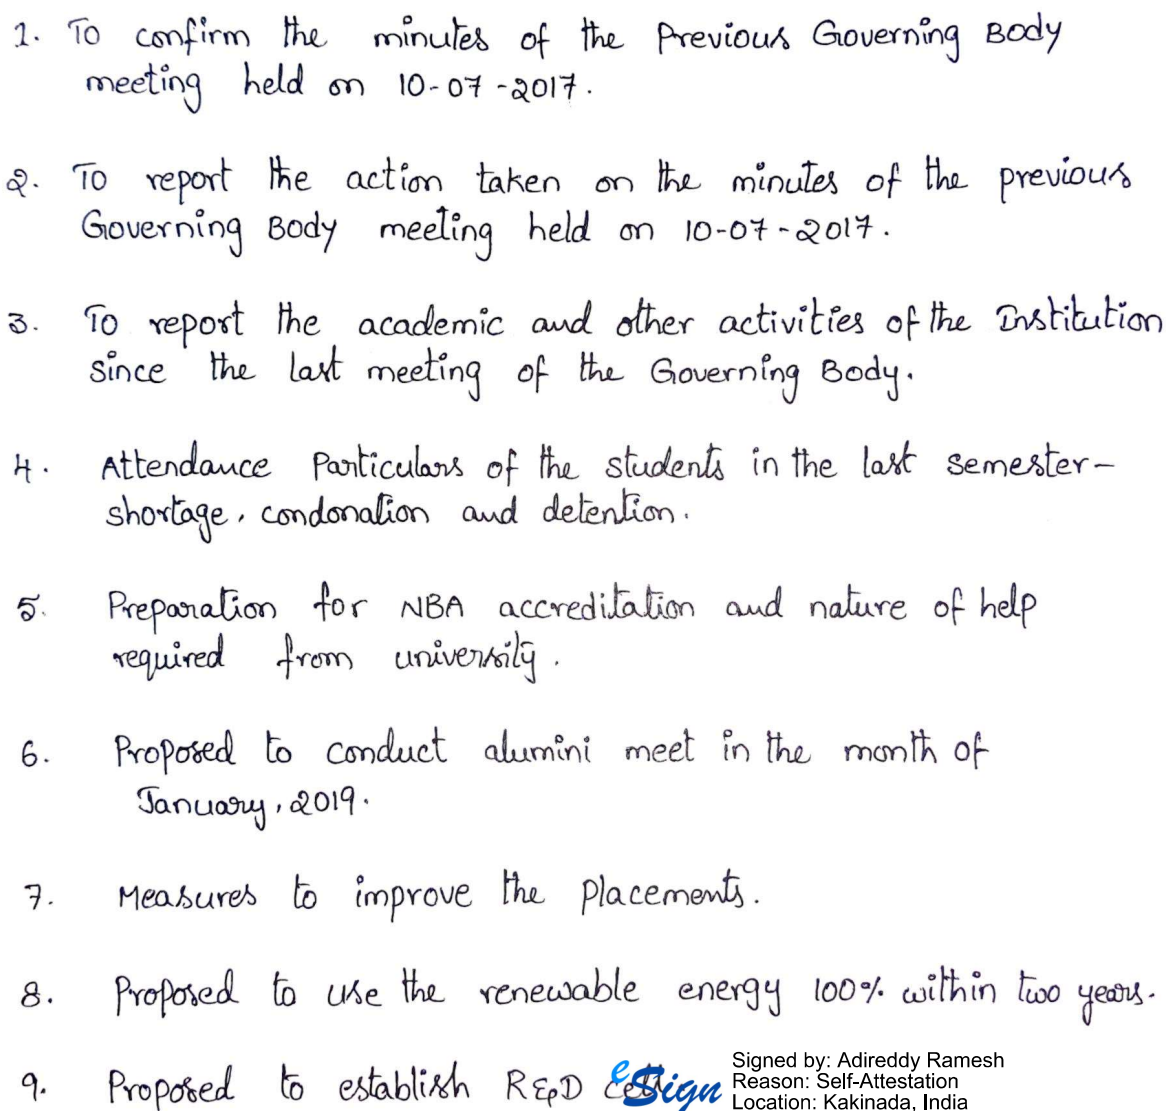 1. To confirm the minutes of the Previous Governing Body
meeting held on 10-07-2017.
2. To report the action taken on the minutes of the previous
Governing Body meeting held on 10-07-2017.
3. To report the academic and other activities of the Institution
since the last meeting of the Governing Body.
4. Attendance Particulars of the students in the last semester-
shortage, condonation and detention.
5. Preparation for NBA accreditation and nature of help
required from university.
6. Proposed to conduct alumini meet in the month of
January, 2019.
7. Measures to improve the Placements.
8. Proposed to use the renewable energy 100% within two years.
9. Proposed to establish R&D cell
eSign
Signed by: Adireddy Ramesh
Reason: Self-Attestation
Location: Kakinada, India